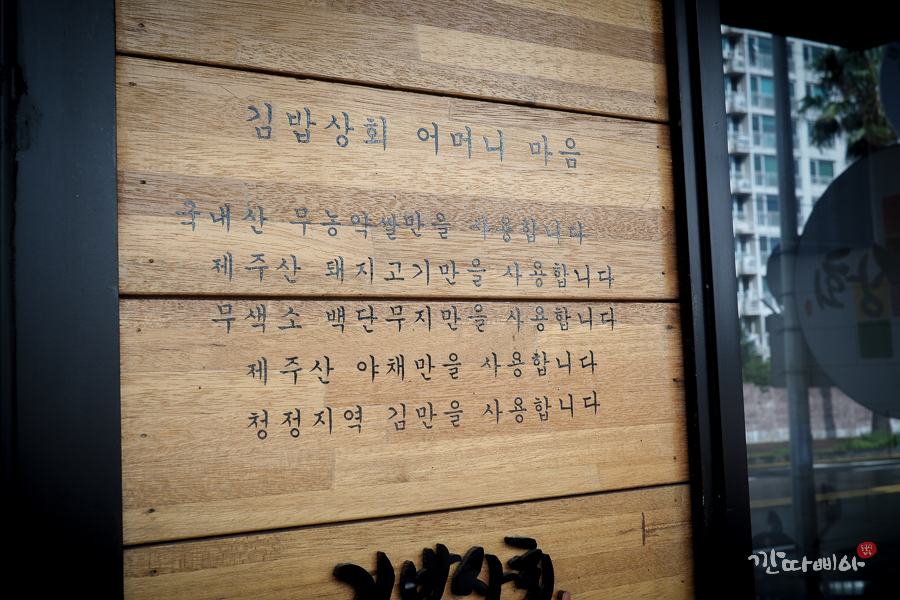 김밥상회 어머니 마음
국내산 무농약쌀만을 사용합니다
제주산 돼지고기만을 사용합니다
무색소 백단무지만을 사용합니다
제주산 야채만을 사용합니다
청정지역 김만을 사용합니다
낀따삐아